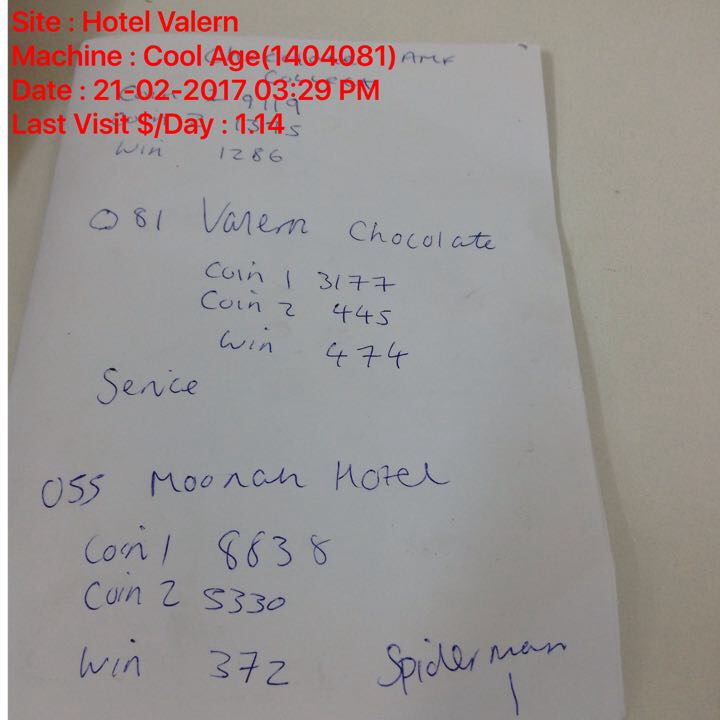 Site : Hotel Valern
Machine : Cool Age(1404081)
Date : 21-02-2017 03:29 PM
Last Visit $/Day : 1.14
AMF
9119
1375
Win 1286
081 Valern Chocolate
Coin 1 3177
Coin 2 445
Win 474
Service
055 Moonah Hotel
Coin 1 8838
Coin 2 5330
Win 372 Spiderman
1